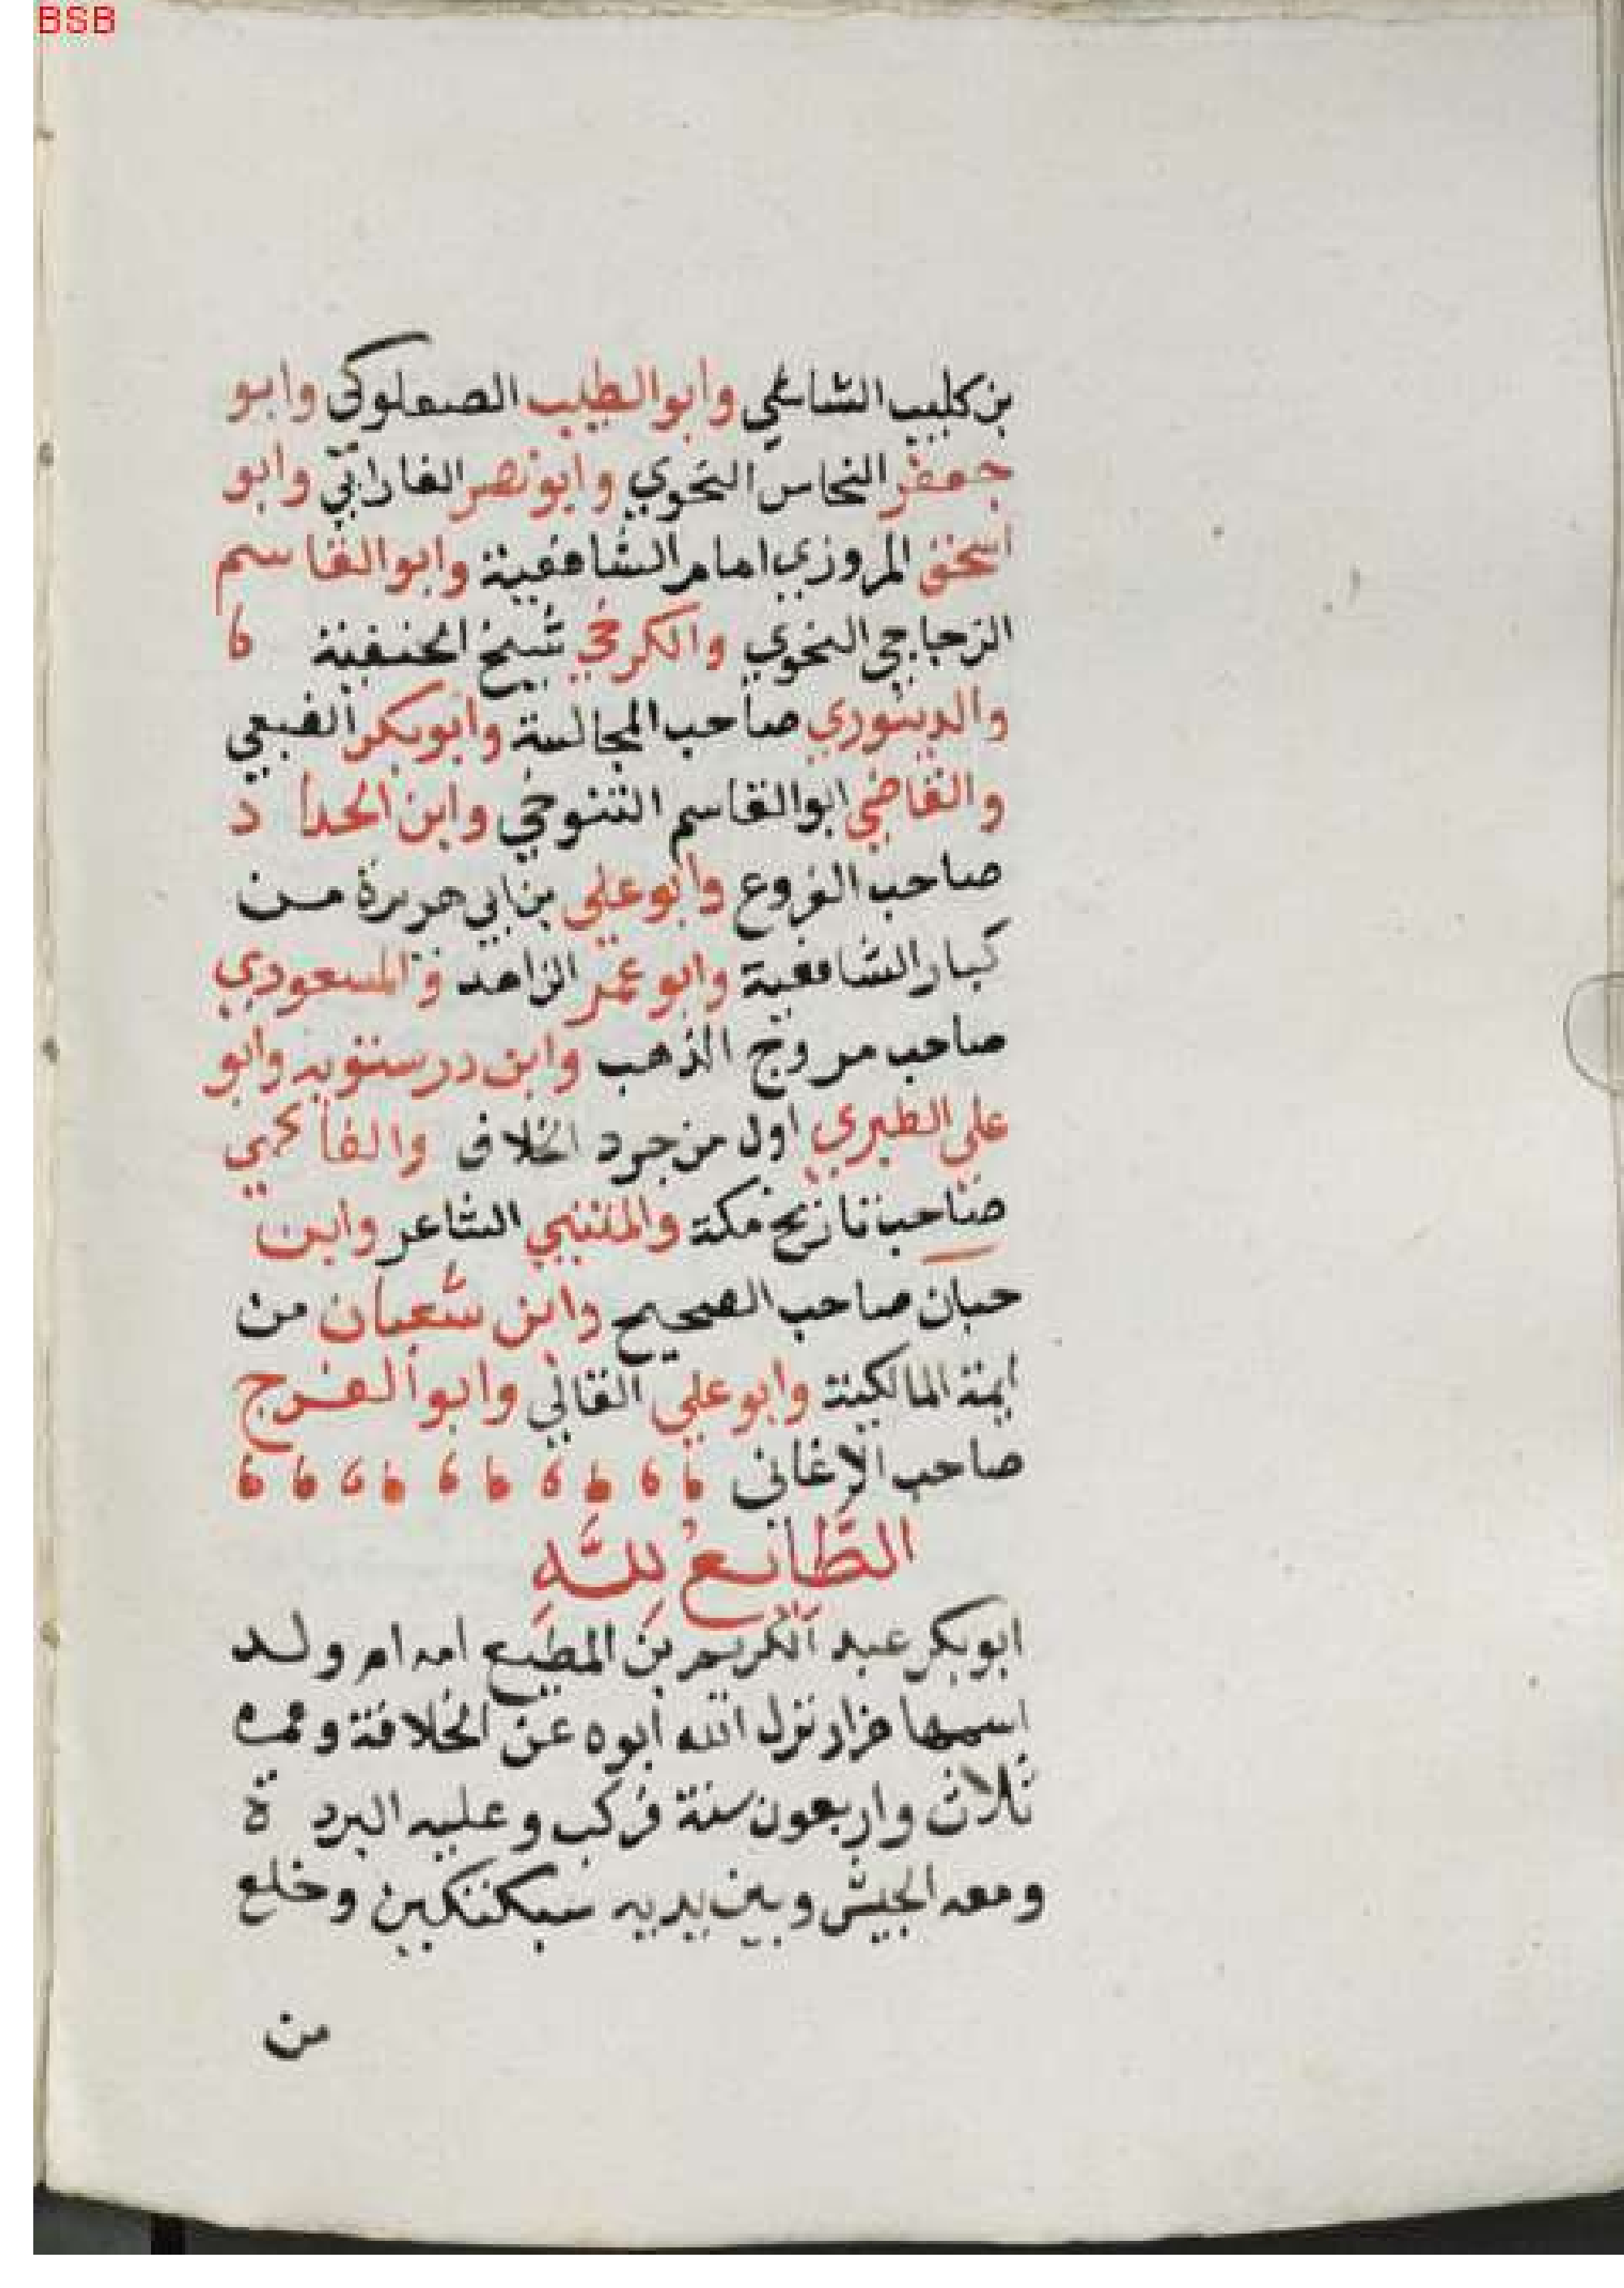 BSB
بن كليب الشاشي وابو الطيب الصعلوكي وابو
جعفر النحاس النحوي وابو نصر الفارابي وابو
اسحق المروزي امام الشافعية وابو القاسم
الزجاجي النحوي والكرخي شيخ الحنفية
والدينوري صاحب المجالسة وابو بكر الضبعي
والقاضي ابو القاسم التنوخي وابن الحداد
صاحب الفروع وابو علي بن ابي هريرة من
كبار الشافعية وابو عمر الزاهد والمسعودي
صاحب مروج الذهب وابن درستويه وابو
علي الطبري اول من جرد الخلاف والفاكهي
صاحب تاريخ مكة والمتنبي الشاعر وابن
حبان صاحب الصحيح وابن شعبان من
ايمة المالكية وابو علي القالي وابو الفرج
صاحب الاغاني
الطَّائع لِلَّهِ
ابو بكر عبد الكريم بن المطيع امه ام ولد
اسمها هزار نزل الله ابوه عن الخلافة وعمره
ثلاث واربعون سنة فركب وعليه البردة
ومعه الجيش وبين يديه سبكتكين وخلع
من